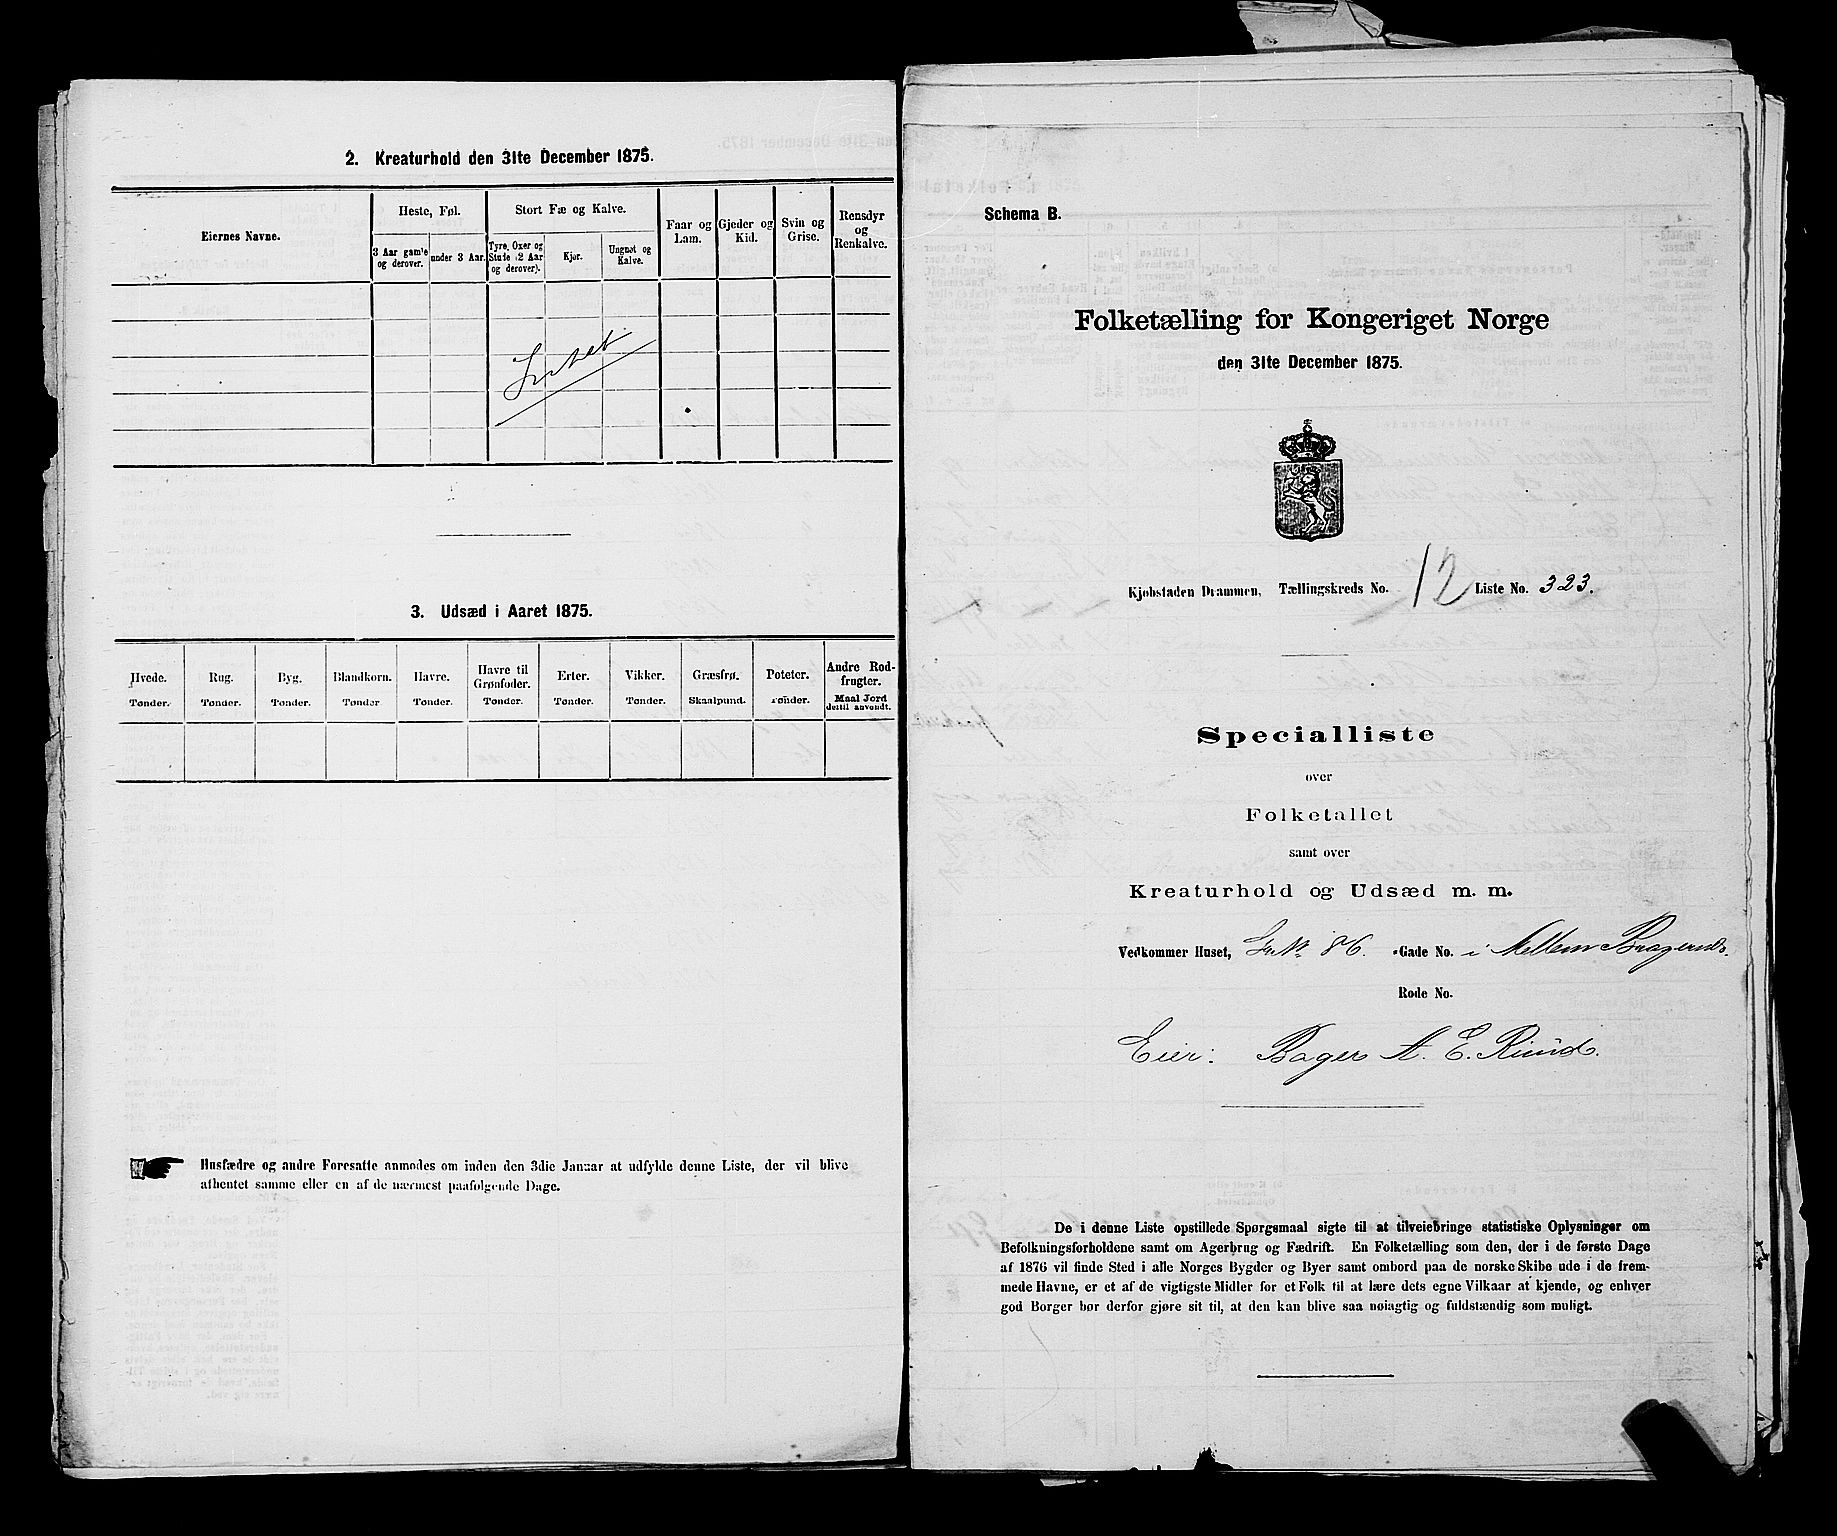 2. Kreaturhold den 31te December 1875.
Eiernes Navne.
Heste, Føl.
Stort Fæ og Kalve.
Faar og Lam.
Gjeder og Kid.
Svin og Grise.
Rensdyr og Renkalve.
3 Aar gamle og derover.
under 3 Aar.
Tyre, Oxer og Stude (2 Aar og derover).
Kjør.
Ungnøt og Kalve.
Intet
3. Udsæd i Aaret 1875.
Hvede. Rug. Byg. Blandkorn. Havre. Havre til Grønfoder. Erter. Vikker. Græsfrø. Poteter. Andre Rodfrugter.
Tønder. Tønder. Tønder. Tønder Tønder. Tønder. Tønder. Tønder. Skaalpund. Tønder. Maal Jord dertil anvendt.
Husfædre og andre Foresatte anmodes om inden den 3die Januar at udfylde denne Liste, der vil blive
afhentet samme eller en af de nærmest paafølgende Dage.
Schema B.
Folketælling for Kongeriget Norge
den 31te December 1875.
Kjøbstaden Drammen, Tællingskreds No. 12 Liste No. 323.
Specialliste
over
Folketallet
samt over
Kreaturhold og Udsæd m. m.
Vedkommer Huset, Gr No 86. Gade No. i Mellem Bragernes.
Rode No.
Eier: Bager A. E. Ruud.
De i denne Liste opstillede Spørgsmaal sigte til at tilveiebringe statistiske Oplysninger om
Befolkningsforholdene samt om Agerbrug og Fædrift. En Folketælling som den, der i de første Dage
af 1876 vil finde Sted i alle Norges Bygder og Byer samt ombord paa de norske Skibe ude i de frem-
mede Havne, er et af de vigtigste Midler for et Folk til at lære dets egne Vilkaar at kjende, og enhver
god Borger bør derfor gjøre sit til, at den kan blive saa nøiagtig og fuldstændig som muligt.